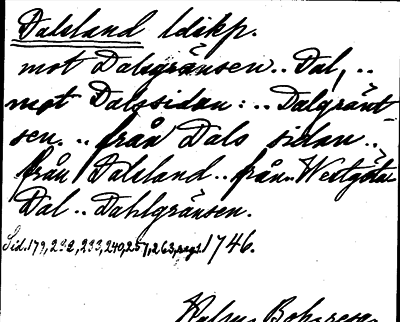 Dalsland ldskp.
mot Dalsgränsen .. Dal, ..
mot Dalssidan: .. Dalgränt
sen. .. från Dals sidan ..
från Dalsland .. från Westgöta
Dal .. Dahlgränsen.
Sid. 179, 232, 233, 240, 257, 263, 1746.
Kalms Bohusresa.